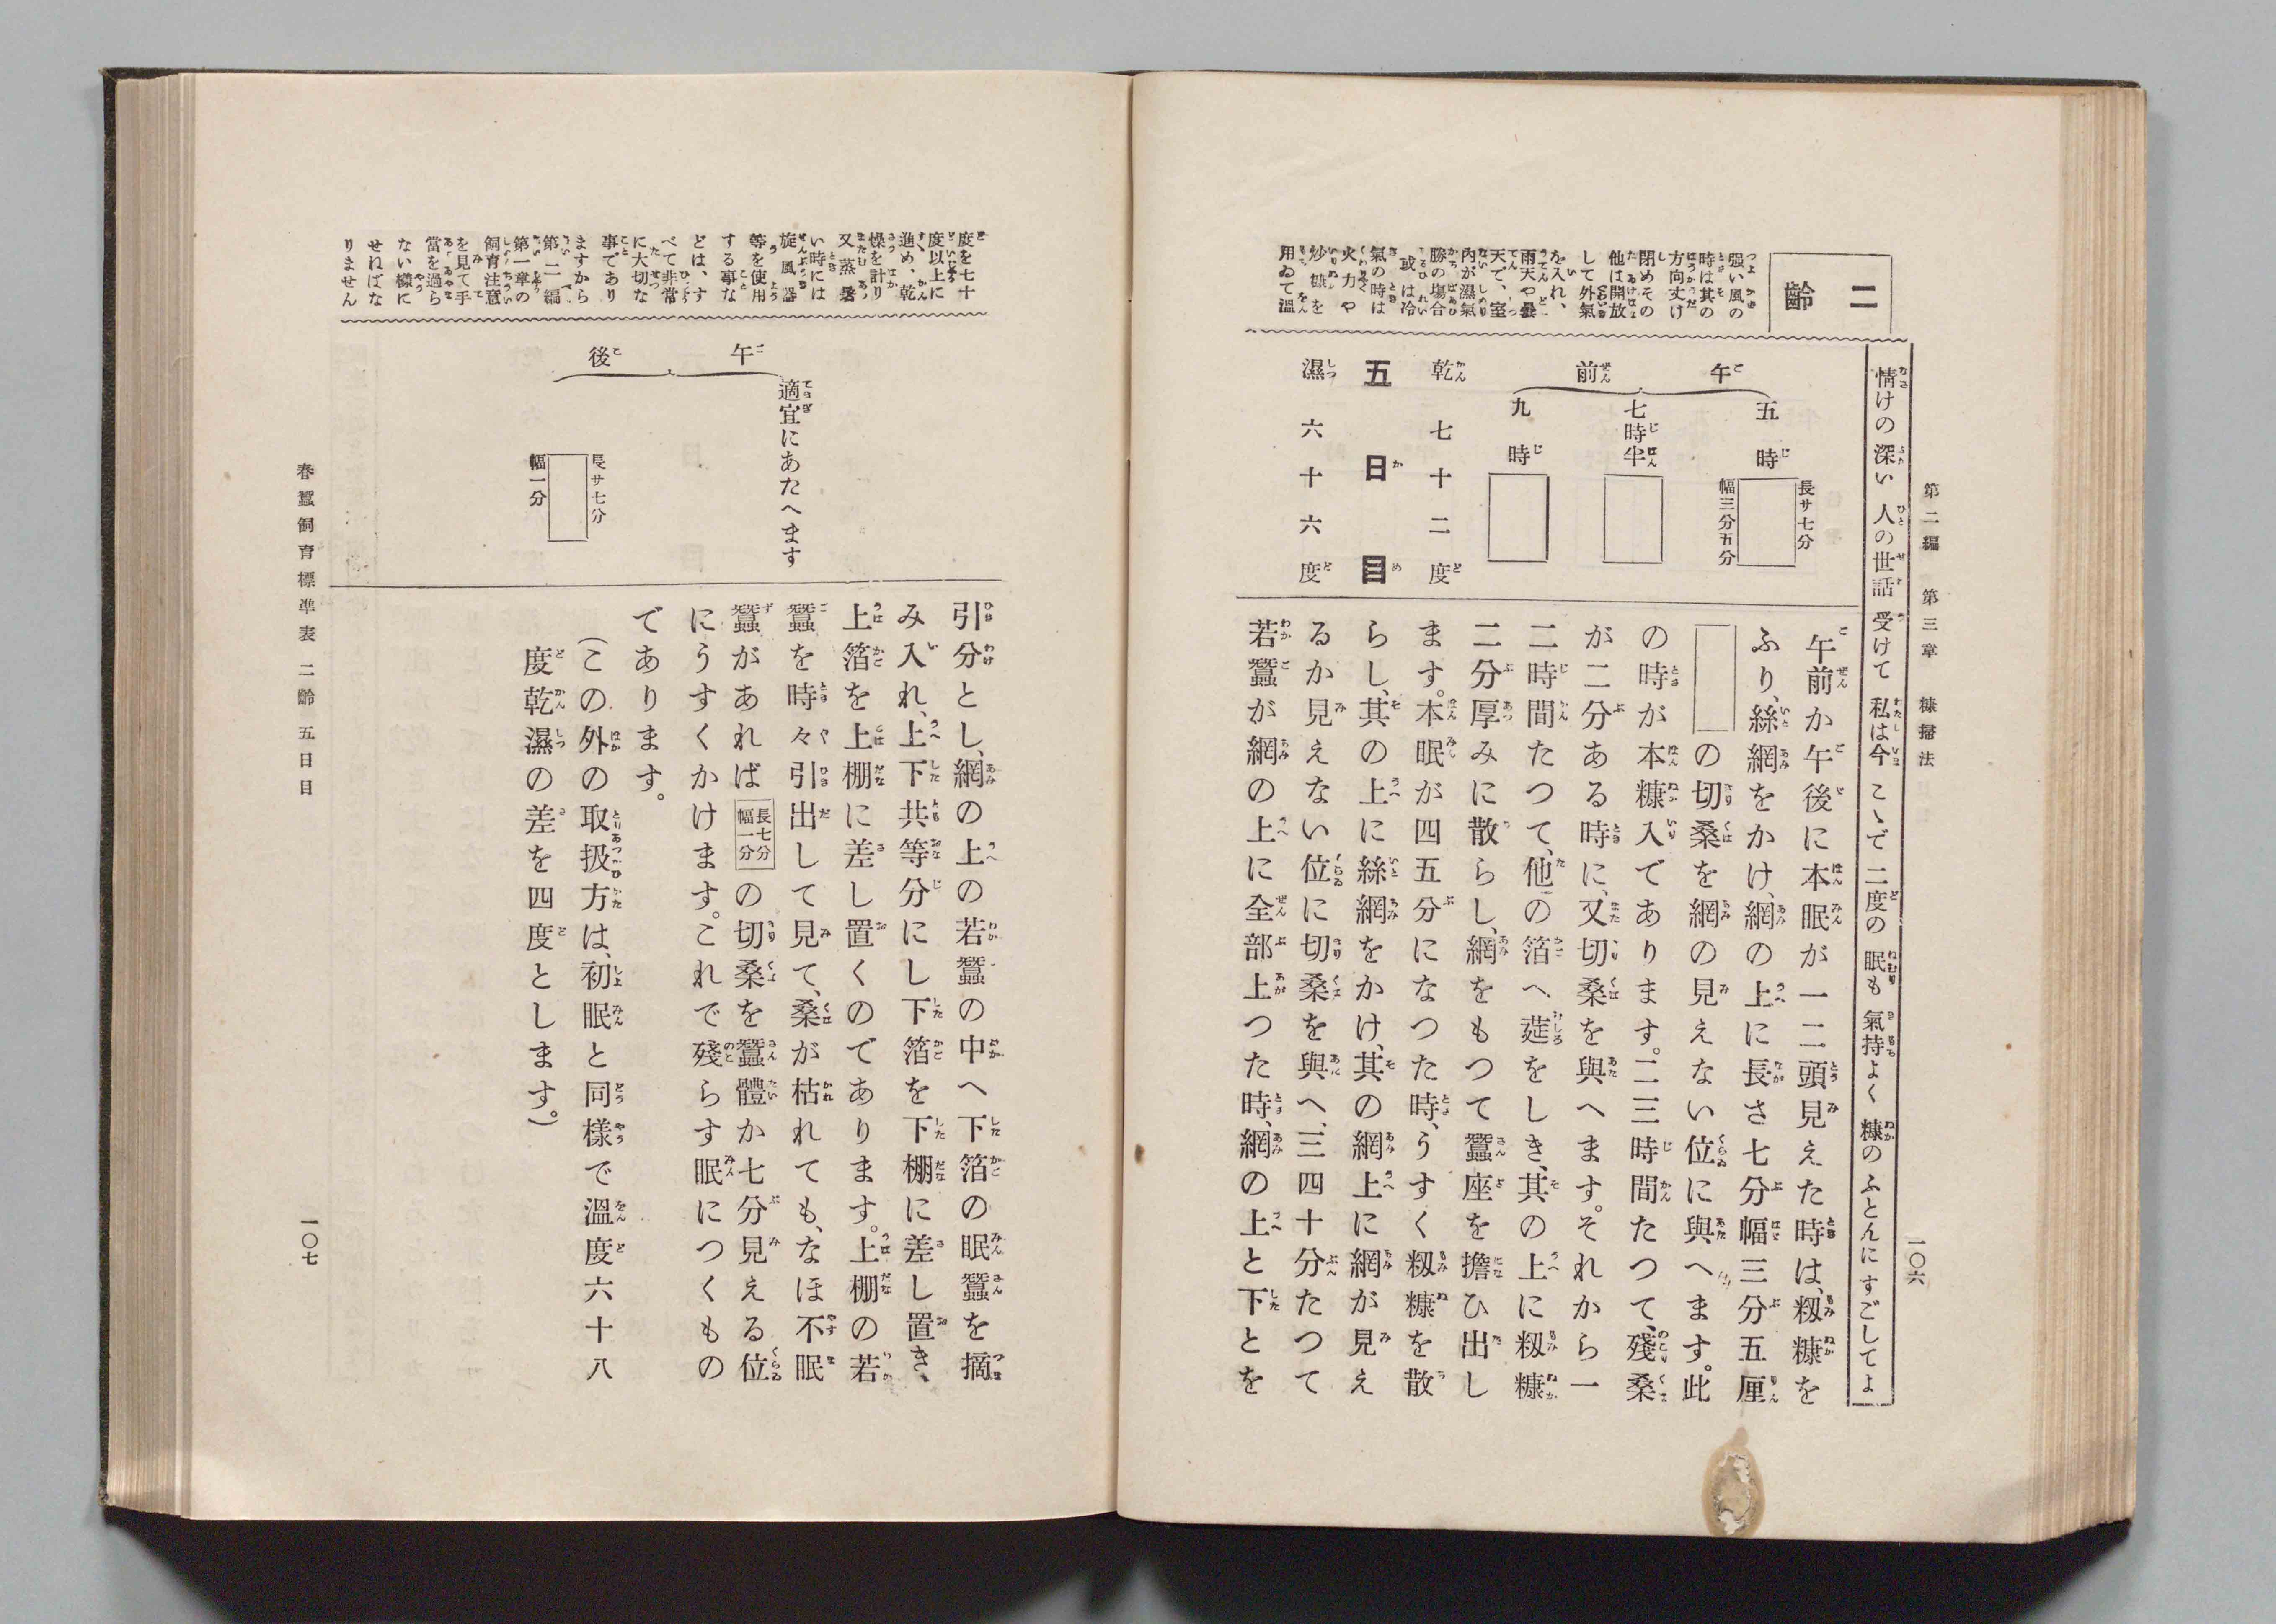 第二編　第三章　糠掃法
一〇六
情けの深い　人の世話　受けて　私は今　こゝで　二度の　眠も　氣持よく　糠の　ふとんに　すごしてよ
二齡
强い風の
時は其の
方向丈け
閉めその
他は開放
して外氣
を入れ、
雨天や曇
天で、室
內が濕氣
勝の場合
或は冷
氣の時は
火力や
炒糠を
用ゐて溫
午前
五時
長サ七分
幅三分五分
七時半
九時
乾　七十二度
五日目
濕　六十六度
午前か午後に本眠が一二頭見えた時は、籾糠を
ふり、絲網をかけ、網の上に長さ七分幅三分五厘
の切桑を網の見えない位に與へます。此
の時が本糠入であります。二三時間たつて、殘桑
が二分ある時に、又切桑を與へます。それから一
二時間たつて、他の箔へ莚をしき、其の上に籾糠
二分厚みに散らし、網をもつて蠶座を擔ひ出し
ます。本眠が四五分になつた時、うすく籾糠を散
らし、其の上に絲網をかけ、其の網上に網が見え
るか見えない位に切桑を與へ、三四十分たつて
若蠶が網の上に全部上つた時、網の上と下とを
度を七十
度以上に
進め、乾
燥を計り
又蒸暑
い時には
旋風器
等を使用
する事な
どは、す
べて非常
に大切な
事であり
ますから
第二編
第一章の
飼育注意
を見て手
當を過ら
ない樣に
せねばな
りません
午後
適宜にあたへます
長サ七分
幅一分
引分とし、網の上の若蠶の中へ下箔の眠蠶を摘
み入れ、上下共等分にし下箔を下棚に差し置き、
上箔を上棚に差し置くのであります。上棚の若
蠶を時々引出して見て、桑が枯れても、なほ不眠
蠶があれば長七分幅一分の切桑を蠶體か七分見える位
にうすくかけます。これで殘らす眠につくもの
であります。
（この外の取扱方は、初眠と同樣で溫度六十八
度乾濕の差を四度とします。）
春蠶飼育標準表　二齡　五日目
一〇七